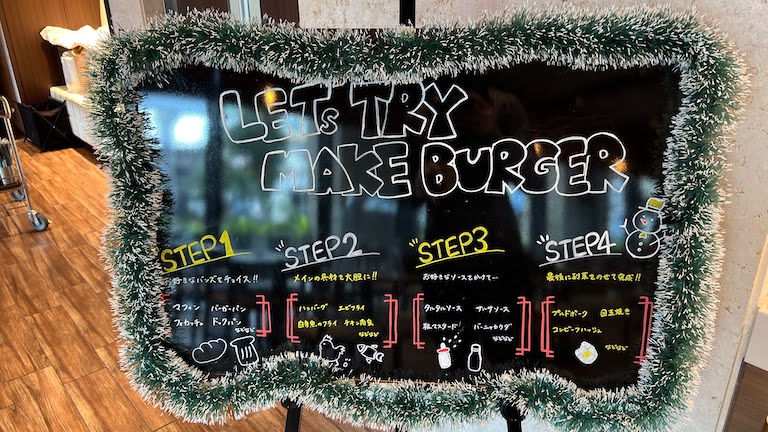 LETs TRY
MAKE BURGER
STEP1
お好きなバンズをチョイス!!
マフィン バーガーパン
フォカッチャ ドッグパン
などなど
STEP2
メインの具材を大胆に!!
ハンバーグ エビフライ
白身魚のフライ チキン南蛮
などなど
STEP3
お好きなソースをかけて…
タルタルソース サルサソース
粒マスタード バーニャカウダ
などなど
STEP4
最後に副菜をのせて完成!!
プルドポーク 目玉焼き
コンビーフハッシュ
などなど